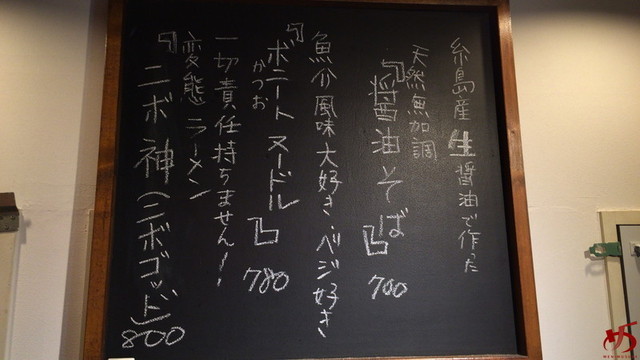 糸島産生醤油で作った
天然無加調
『醤油そば』700
魚介風味大好き、ベジ好き
『ボニートヌードル』780
かつお
一切責任持ちません!
変態ラーメン
『ニボ神(ニボゴッド)800